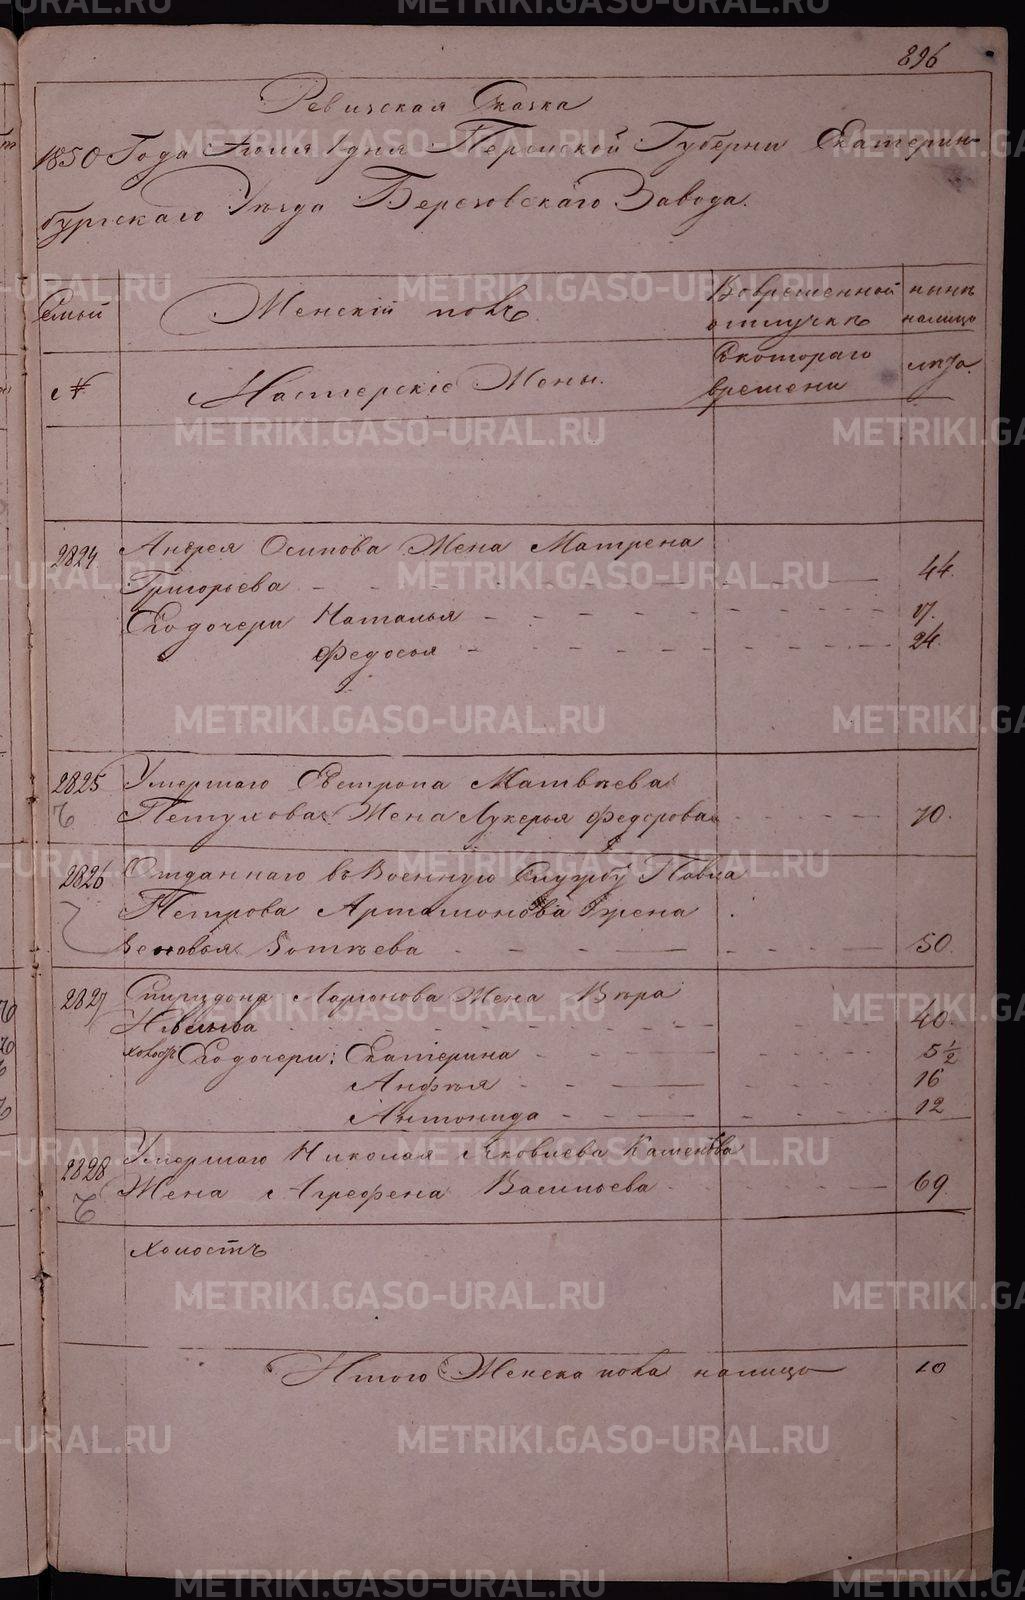 896
Ревизская Сказка
1850 Года Июля 1 дня Пермской Губерни Екатерин
бургскаго Уезда Березовскаго Завода.
Семьи
Женскій полъ
Вовременной
отлучкѣ
нынѣ
налицо
№
Мастерскіе Жены.
Скотораго
времени
лѣта.
2824 Андрея Осипова Жена Матрена
Григорьева 44.
Его дочери Наталья 17.
Федосья 24.
2825 Умершаго Евтропа Матвѣева
Петухова Жена Лукерья Федорова 70.
2826 Отданнаго въ Военную Службу Павла
Петрова Артамонова Жена
Зеновья Зотѣева 50.
2827 Спиридона Ларионова Жена Вѣра
Ивлева 40.
холост Его дочери: Екатерина 5 1/2
Анфья 16
Антонида 12
2828 Умершаго Николая Яковлева Каменова
Жена Агрефена Васильева 69.
Холостъ
Итого Женска пола налицо 10
METRIKI.GASO-URAL.RU